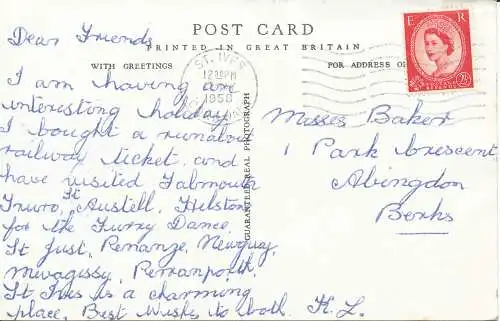 POST CARD
PRINTED IN GREAT BRITAIN
WITH GREETINGS
FOR ADDRESS O
ST. IVES
12 PM
1958
E R
2½
GUARANTEED REAL PHOTOGRAPH
Dear Friends
I am having an
interesting holiday
I bought a runabout
railway ticket and
have visited Falmouth
Truro, St Austell, Helston
for the Furry Dance,
St Just, Penzance, Newquay,
Mevagissy, Perranporth.
St Ives is a charming
place. Best Wishes to both. H.L.
Misses Baker
1 Park Crescent
Abingdon
Berks